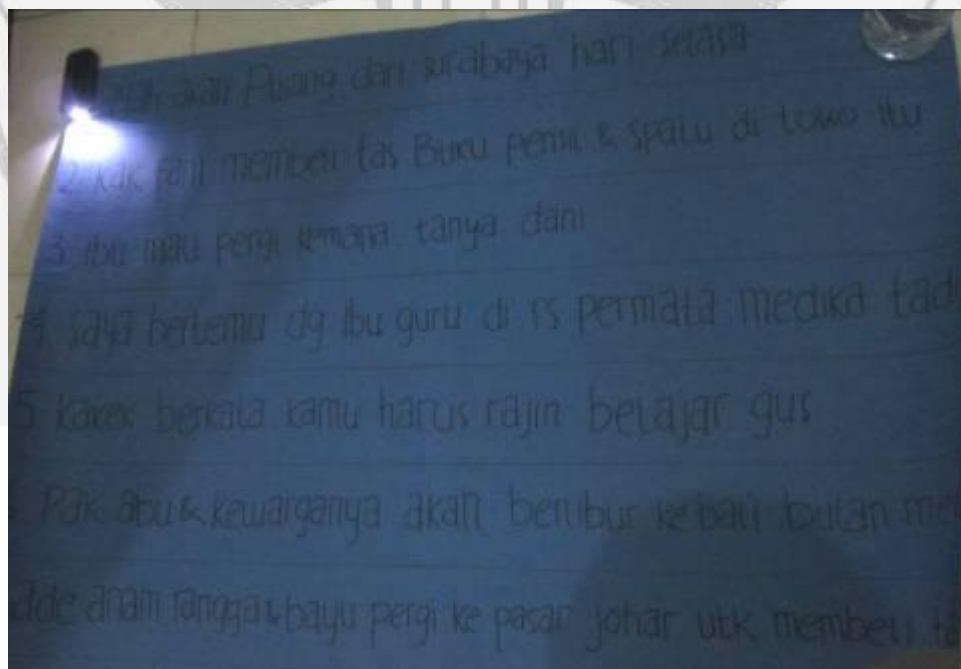 akan Puang dari surabaya hari selasa
2 kak fani membeli tas Buku pensil & spatu di towo itu
3. ibu mau pergi kemana tanya dani
4. saya bertemu dg ibu guru di rs permata medika tadi
5 kakek berkata kamu harus rajin belajar gus
Pak abu & kewarganya akan beribur ke bali bulan
ade anam rangga & bayu pergi ke pasar johar utk membeli